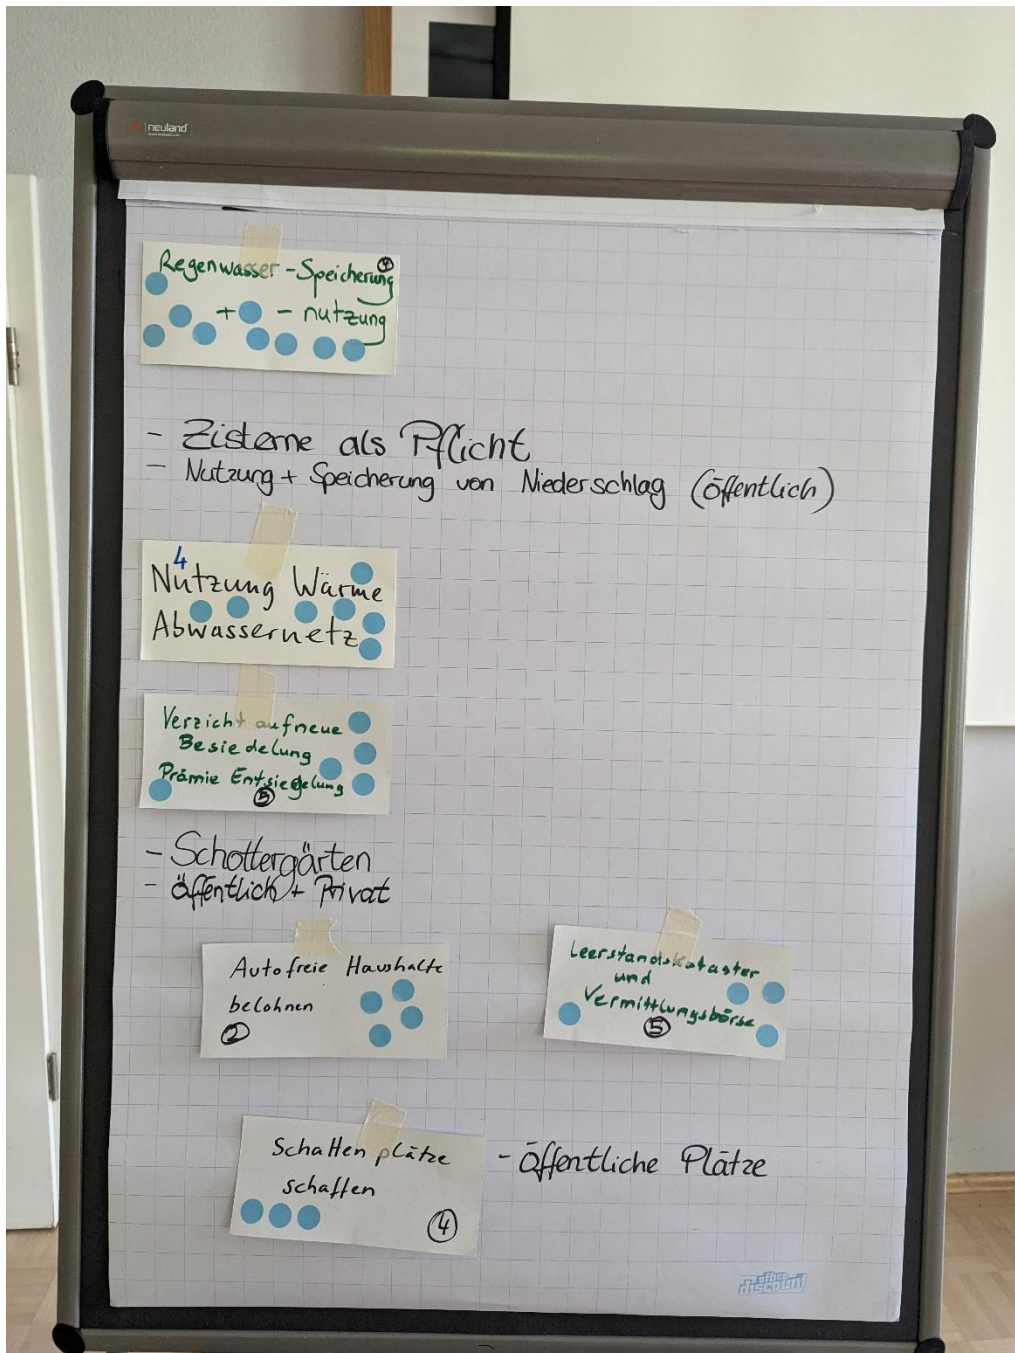 neuland
Regenwasser-Speicherung
+ - nutzung
- Zisterne als Pflicht
- Nutzung + Speicherung von Niederschlag (öffentlich)
4
Nutzung Wärme
Abwassernetz
Verzicht auf neue
Besiedelung
Prämie Entsiegelung
5
- Schottergärten
- öffentlich + Privat
Autofreie Haushalte
belohnen
2
Leerstandskataster
und
Vermittlungsbörse
5
Schattenplätze
schaffen
4
- öffentliche Plätze
office
discount